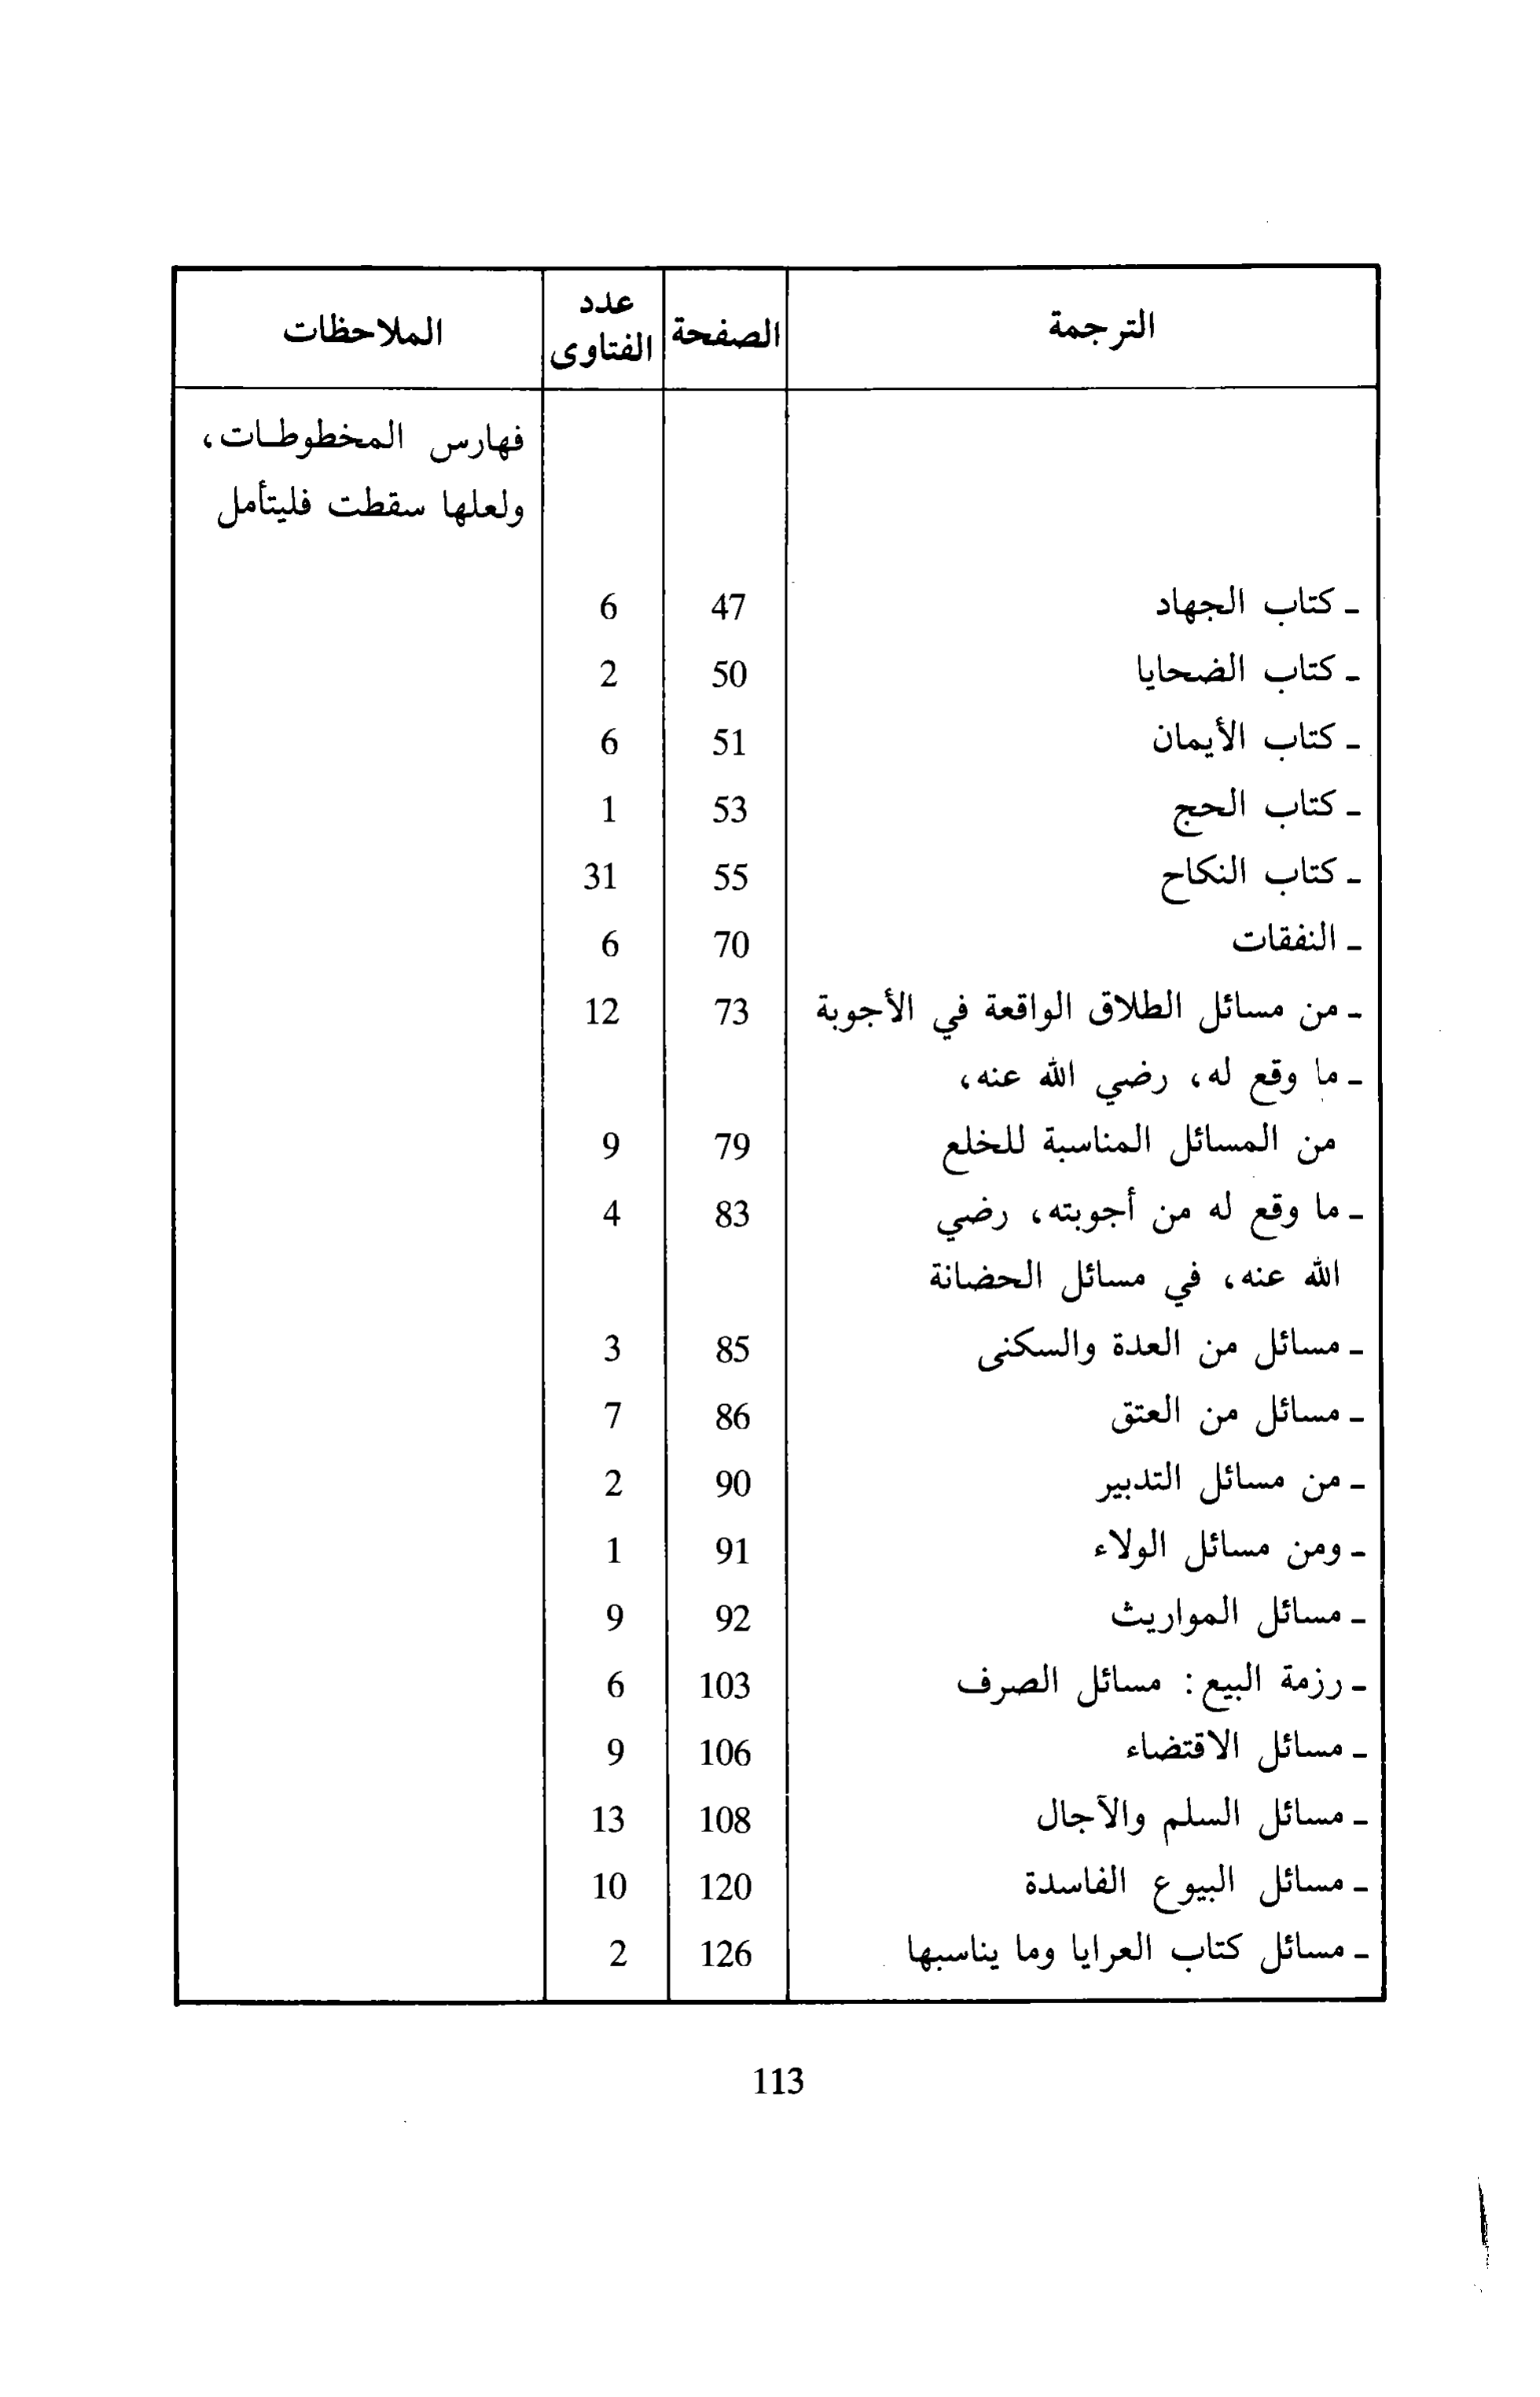 الترجمة الصفحة عدد الفتاوى الملاحظات
فهارس المخطوطات،
ولعلها سقطت فليتأمل
ـ كتاب الجهاد 47 6
ـ كتاب الضحايا 50 2
ـ كتاب الأيمان 51 6
ـ كتاب الحج 53 1
ـ كتاب النكاح 55 31
ـ النفقات 70 6
ـ من مسائل الطلاق الواقعة في الأجوبة 73 12
ـ ما وقع له، رضي الله عنه،
من المسائل المناسبة للخلع 79 9
ـ ما وقع له من أجوبته، رضي 83 4
الله عنه، في مسائل الحضانة
ـ مسائل من العدة والسكنى 85 3
ـ مسائل من العتق 86 7
ـ من مسائل التدبير 90 2
ـ ومن مسائل الولاء 91 1
ـ مسائل المواريث 92 9
ـ رزمة البيع: مسائل الصرف 103 6
ـ مسائل الاقتضاء 106 9
ـ مسائل السلم والآجال 108 13
ـ مسائل البيوع الفاسدة 120 10
ـ مسائل كتاب العرايا وما يناسبها 126 2
113